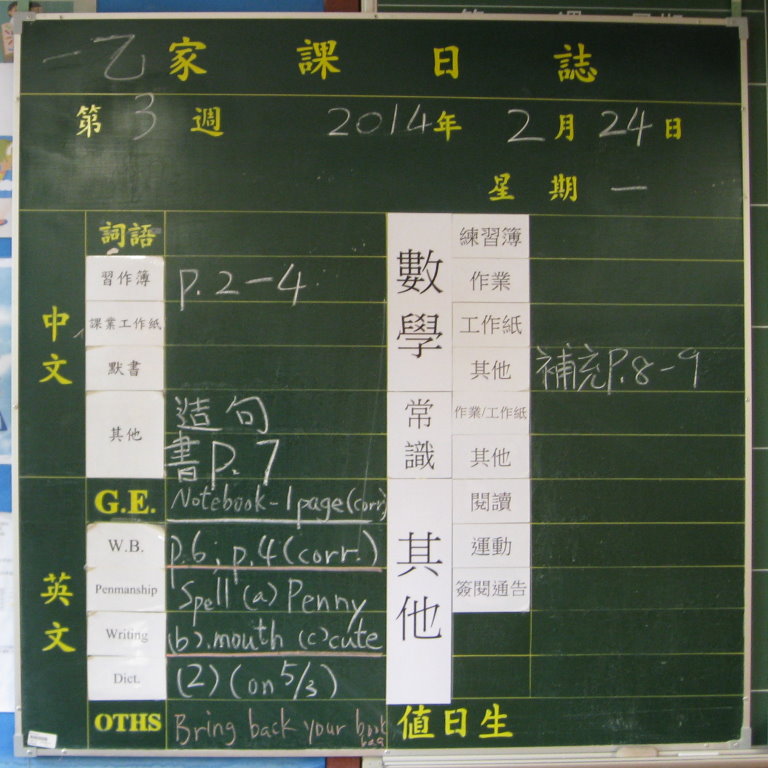 一乙家課日誌
第3週 2014年2月24日
星期一
中文
詞語
習作簿 P.2-4
課業工作紙
默書
其他 造句
書P.7
英文
G.E. Notebook-1 page(corr)
W.B. p.6; p.4(corr.)
Penmanship Spell (a) Penny
Writing (b).mouth (c)cute
Dict. (2)(on 5/3)
OTHS Bring back your book
bag
數學
練習簿
作業
工作紙
其他 補充P.8-9
常識
作業/工作紙
其他
其他
閱讀
運動
簽閱通告
值日生